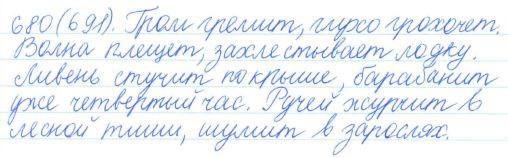 680(691). Гром гремит, глухо грохочет.
Волна плещет, захлестывает лодку.
Ливень стучит по крыше, барабанит
уже четвертый час. Ручей журчит в
лесной тиши, шумит в зарослях.